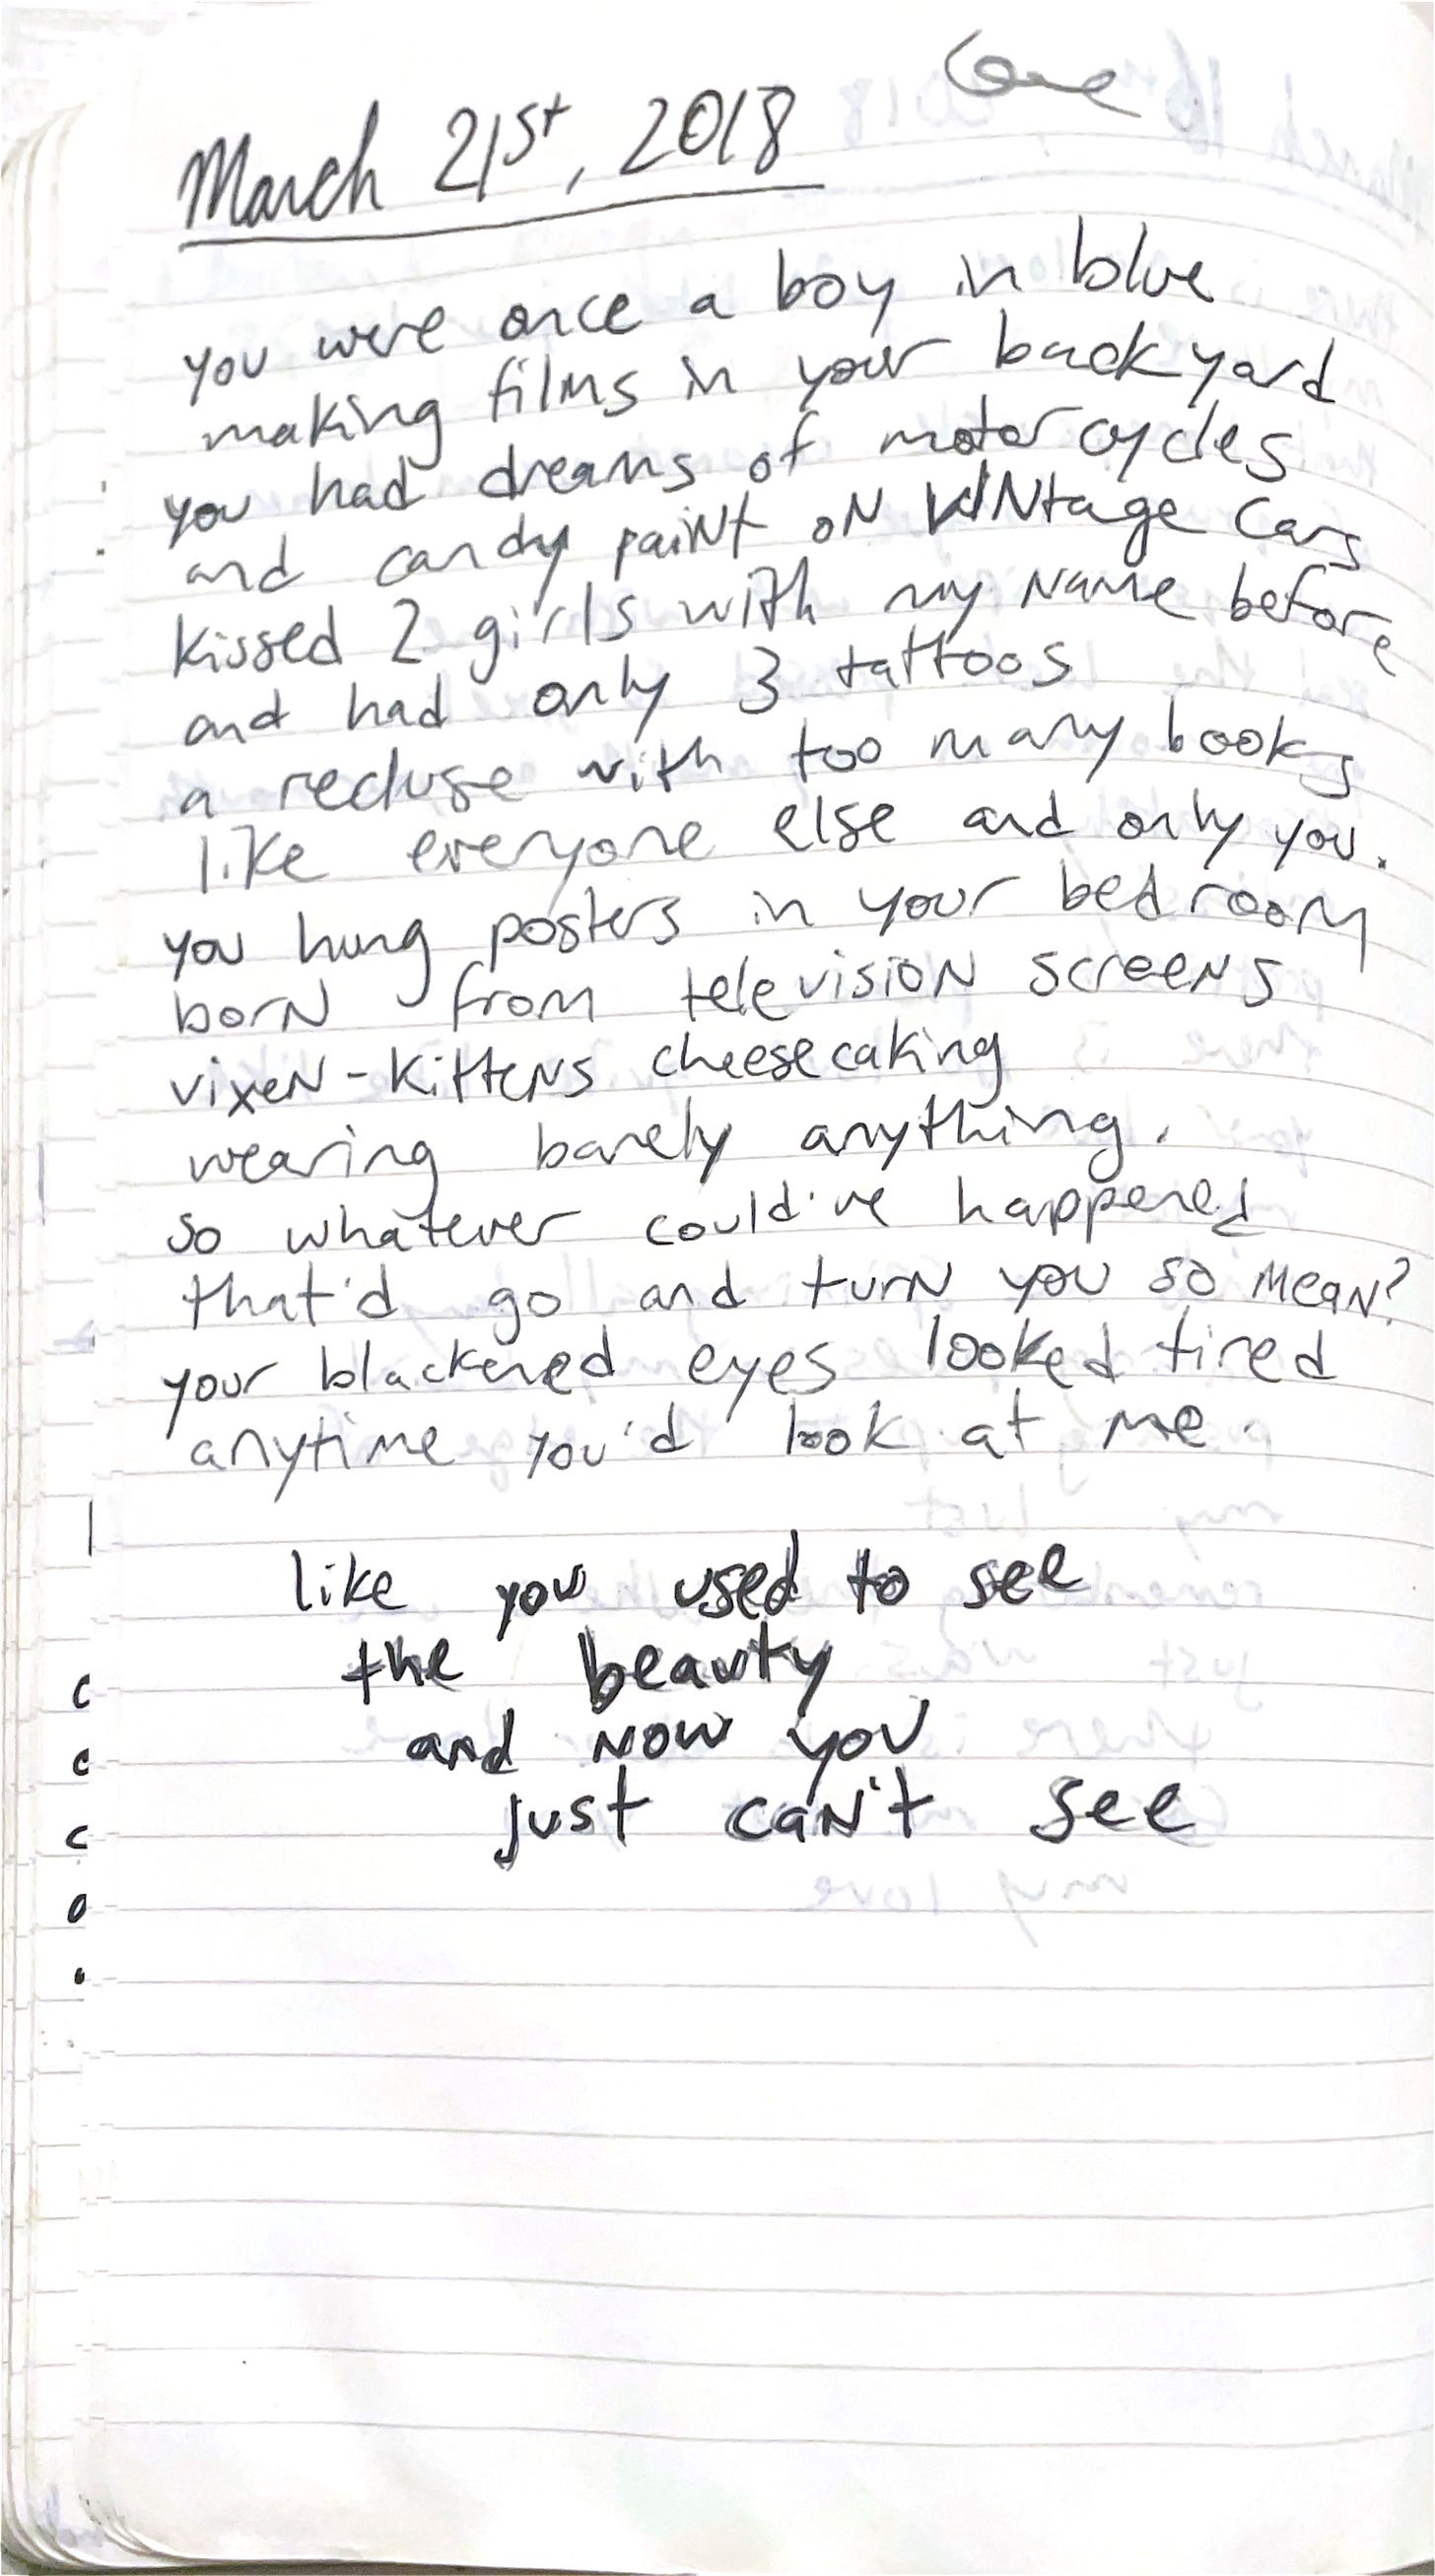 March 21st, 2018
you were once a boy in blue
making films in your backyard
you had dreams of motorcycles
and candy paint on vintage cars
kissed 2 girls with my name before
and had only 3 tattoos
a recluse with too many books
like everyone else and only you.
you hung posters in your bedroom
born from television screens
vixen-kittens cheesecaking
wearing barely anything.
so whatever could've happened
that'd go and turn you so mean?
your blackened eyes looked tired
anytime you'd look at me.
like you used to see
the beauty
and now you
just can't see